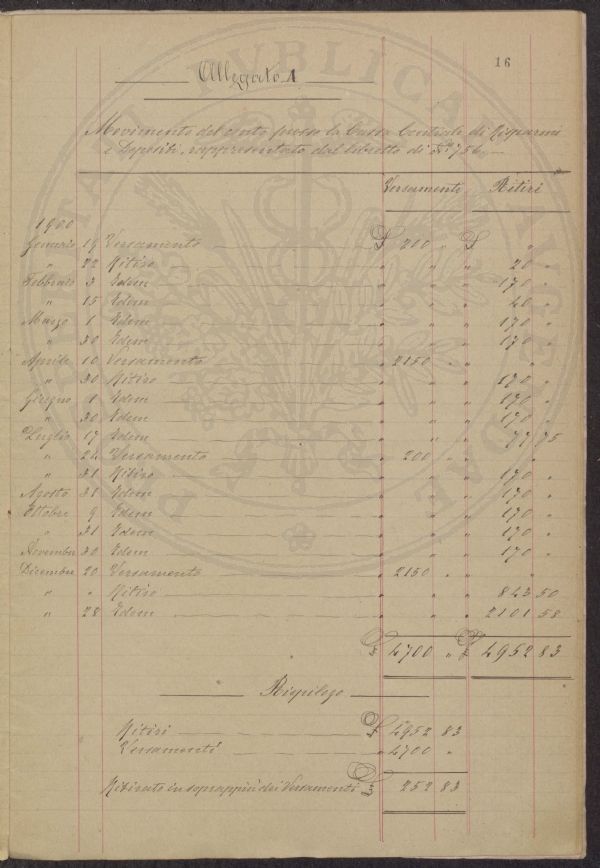 16
Allegato 1
Movimento del conto presso la Cassa Centrale di Risparmi
e Depositi, rappresentato dal libretto di N.° 756.
Versamenti Ritiri
1900
Gennaio 19 Versamento £ 200 " £ "
" 22 Ritiro " " 20 "
Febbraio 3 Idem " " 170 "
" 15 Idem " " 40 "
Marzo 1 Idem " " 170 "
" 30 Idem " " 170 "
Aprile 10 Versamento " 2150 " " "
" 30 Ritiro " " 170 "
Giugno 1 Idem " " 170 "
" 30 Idem " " 170 "
Luglio 17 Idem " " 77 75
" 24 Versamento " 200 " " "
" 31 Ritiro " " 170 "
Agosto 31 Idem " " 170 "
Ottobre 9 Idem " " 170 "
" 31 Idem " " 170 "
Novembre 30 Idem " " 170 "
Dicembre 20 Versamento " 2150 " " "
" " Ritiro " " 843 50
" 28 Idem " " 2101 58
£ 4700 " £ 4952 83
Riepilogo
Ritiri £ 4952 83
Versamenti " 4700 "
Ritirato in soprappiù dei Versamenti £ 252 83